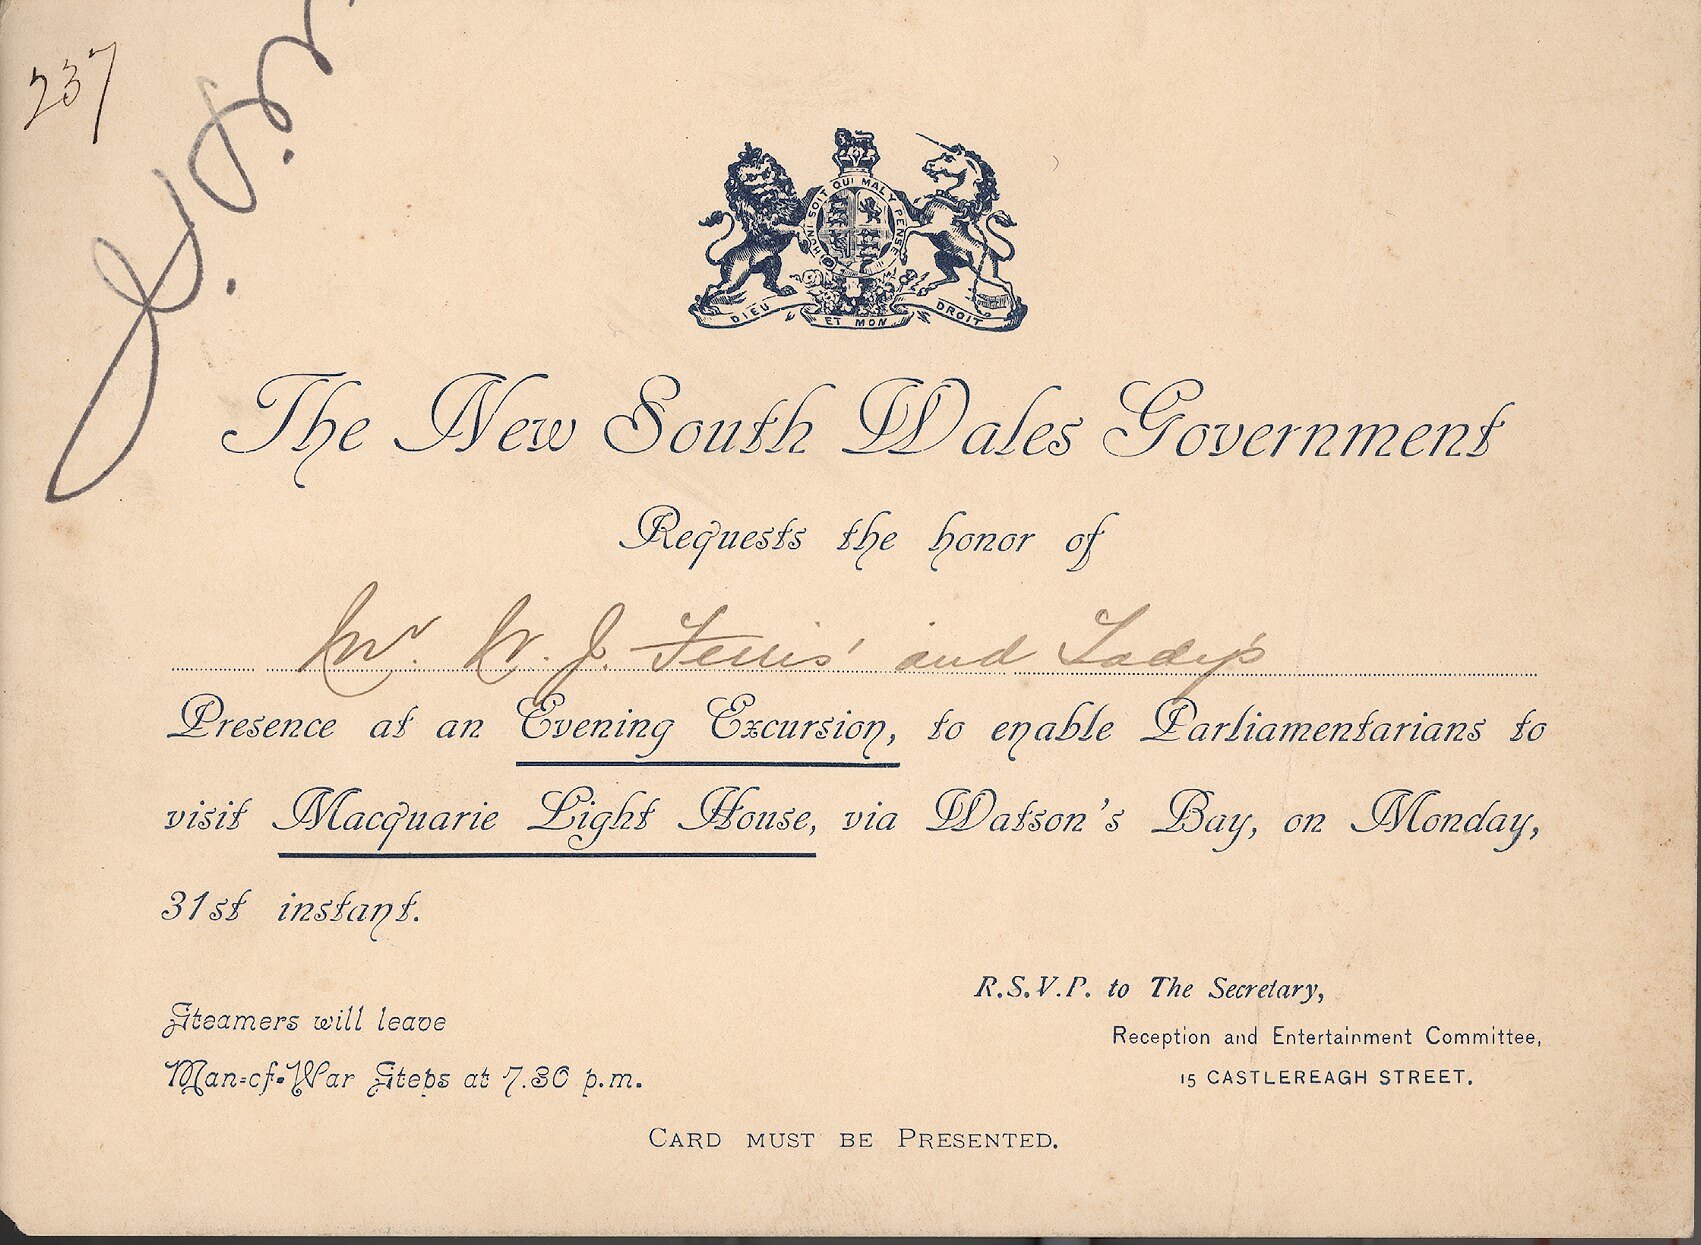 237
HONI SOIT QUI MAL Y PENSE
DIEU ET MON DROIT
The New South Wales Government
Requests the honor of
Mr. W. J. Ferris' and Lady's
Presence at an Evening Excursion, to enable Parliamentarians to
visit Macquarie Light House, via Watson's Bay, on Monday,
31st instant.
Steamers will leave
Man-of-War Steps at 7.30 p.m.
R.S.V.P. to The Secretary,
Reception and Entertainment Committee,
15 CASTLEREAGH STREET.
CARD MUST BE PRESENTED.